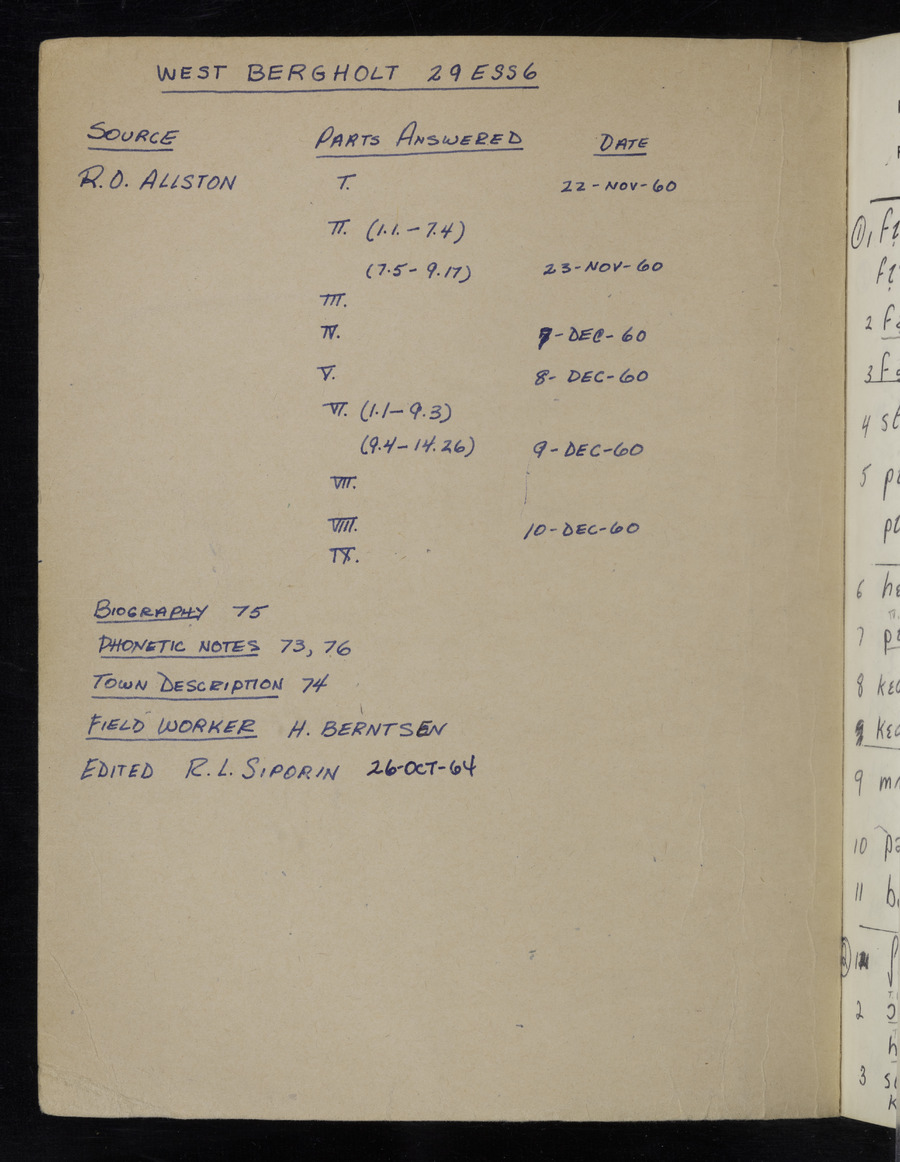 WEST BERGHOLT 29 ESS 6
SOURCE PARTS ANSWERED DATE
R.O. ALLSTON I. 22-NOV-60
II. (1.1.-7.4)
(7.5-9.17) 23-NOV-60
III.
IV. 7-DEC-60
V. 8-DEC-60
VI. (1.1-9.3)
(9.4-14.26) 9-DEC-60
VII.
VIII. 10-DEC-60
IX.
BIOGRAPHY 75
PHONETIC NOTES 73, 76
TOWN DESCRIPTION 74
FIELD WORKER H. BERNTSEN
EDITED R.L. SIPORIN 26-OCT-64
2
3
4
5
6
7
8
9
10
11
2
3